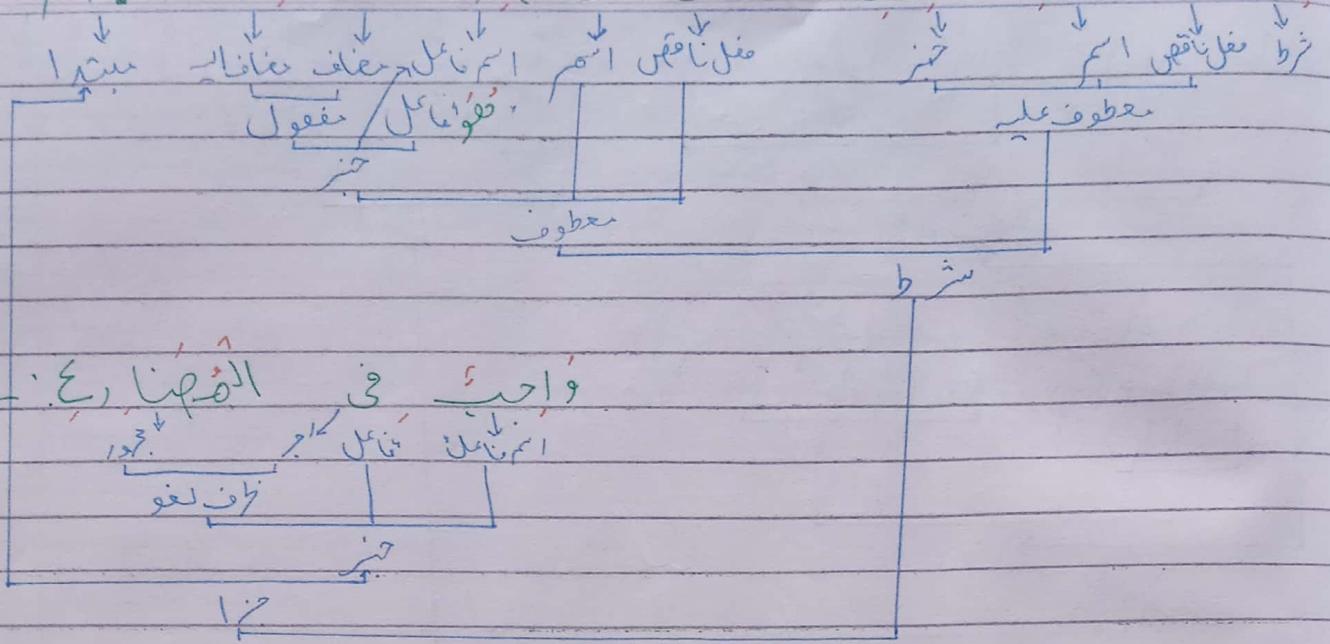 شرط فعل ناقص اسم خبر فعل ناقص اسم اسم فاعل مضاف مضاف الیہ مبتدا
معطوف علیہ فاعل مفعول
خبر
معطوف
شرط
وَاجِبٌ فی الْمُضَارِعِ۔
اسم فاعل فاعل جار مجرور
ظرف لغو
خبر
جزا